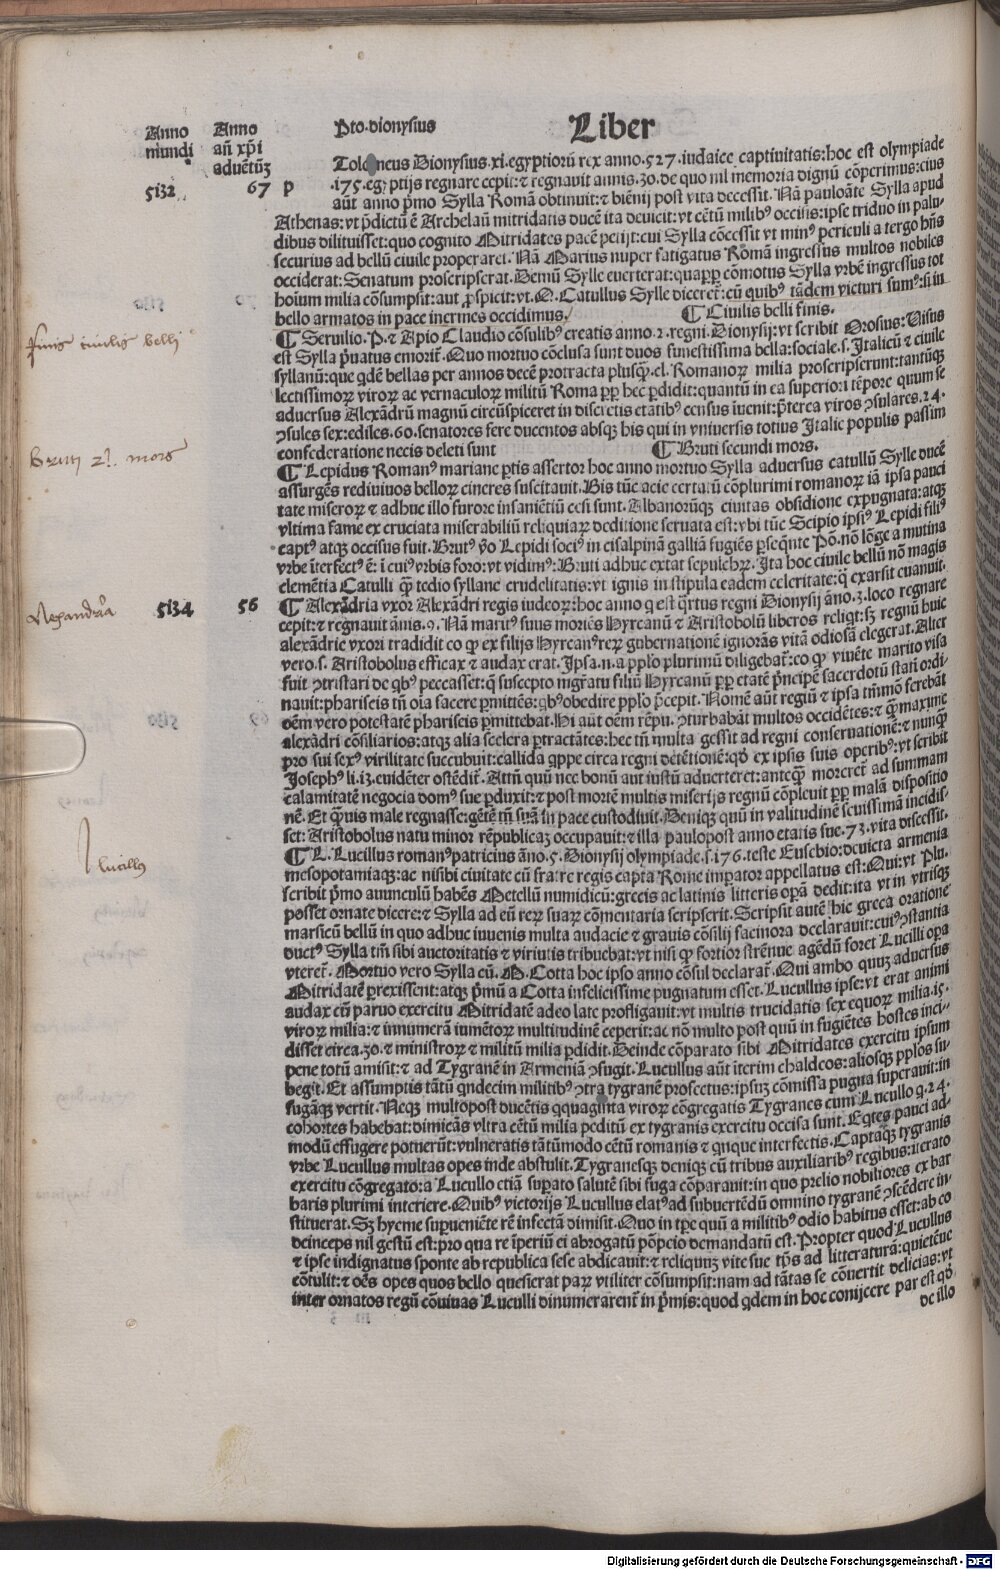 Anno mundi
Anno añ xp̃i aduētū
Pto. dionysius
Liber
5132 67 p
Tolomeus Dionysius .xi. egyptiorū rex anno .527. iudaice captiuitatis: hoc est olympiade
.175. egyptijs regnare cepit: ⁊ regnauit annis .30. de quo nil memoria dignū cōperimus: cius
aūt anno p̄mo Sylla Romā obtinuit: ⁊ biēnij post vita decessit. Nā pauloāte Sylla apud
Athenas: vt p̄dictū ē Archelaū mitridatis ducē ita deuicit: vt cētū milib⁹ occisis: ipse triduo in palu-
dibus dilituisset: quo cognito Mitridates pacē petijt: cui Sylla cōcessit vt min⁹ periculi a tergo hñs
securius ad bellū ciuile properaret. Nā Marius nuper fatigatus Romā ingressus multos nobiles
occiderat: Senatum proscripserat. Demū Sylle euerterat: quapp̄ cōmotus Sylla vrbē ingressus tot
hoīum milia cōsumpsit: aut p̄spicit: vt .Q. Catullus Sylle diceret̄: cū quib⁹ tādem victuri sum⁹: si in
bello armatos in pace inermes occidimus. ¶ Ciuilis belli finis.
¶ Seruilio .P. ⁊ Apio Claudio cōsulib⁹ creatis anno .2. regni Dionysij: vt scribit Orosius: Visus
est Sylla p̄uatus emorit̄. Quo mortuo cōclusa sunt duos funestissima bella: sociale .s. Italicū ⁊ ciuile
syllanū: que q̇dē bellas per annos decē protracta plusq̄ȝ .cl. Romanoꝝ milia proscripserunt: tantūqȝ
lectissimoꝝ viroꝝ ac vernaculoꝝ militū Roma p̄p̄ hec p̄didit: quantū in ea superiori tēpore quum se
aduersus Alexādrū magnū circūspiceret in discretis etatib⁹ census iuenit: p̄terea viros ꝯsulares .24.
ꝯsules sex: ediles .60. senatores fere ducentos absqȝ his qui in vniuersis totius Italie populis passim
confederatione necis deleti sunt ¶ Bruti secundi mors.
¶ Lepidus Roman⁹ mariane p̄tis assertor hoc anno mortuo Sylla aduersus catullū Sylle ducē
assurgēs rediuiuos belloꝝ cineres suscitauit. Bis tūc acie certatū cōplurimi romanoꝝ iā ipsa pauci
tate miseroꝝ ⁊ adhuc illo furore insaniētiū cesi sunt. Albanorūqȝ ciuitas obsidione expugnata: atqȝ
vltima fame ex cruciata miserabiliū reliquiaꝝ deditione seruata est: vbi tūc Scipio ipsi⁹ Lepidi fili⁹
capt⁹ atqȝ occisus fuit. Brut⁹ v̄o Lepidi soci⁹ in cisalpinā galliā fugiēs p̄seq̄nte Pō. nō lōge a mutina
vrbe īterfect⁹ ē: ī cui⁹ vrbis foro: vt vidim⁹: Bruti adhuc extat sepulchꝝ. Ita hoc ciuile bellū nō magis
clemētia Catulli q̄ȝ tedio syllane crudelitatis: vt ignis in stipula eadem celeritate: q̄ exarsit euanuit.
5134 56
¶ Alexādria vxor Alexādri regis iudeoꝝ: hoc anno q est q̄rtus regni Dionysij āno .3. loco regnare
cepit: ⁊ regnauit ānis .9. Nā marit⁹ suus moriēs Hyrcanū ⁊ Aristobolū liberos reliq̄t: sȝ regnū huic
alexādrie vxori tradidit eo q̄ ex filijs Hyrcan⁹ reꝝ gubernationē ignorās vitā odiosā elegerat. Alter
vero .s. Aristobolus efficax ⁊ audax erat. Ipsa .n. a pp̄lo plurimū diligebat̄: eo q̄ viuēte marito visa
fuit ꝯtristari de qb⁹ peccasset: q̄ suscepto migr̄atu filiū Hyrcanū p̄p̄ etatē p̄ncipē sacerdotū stati ordi-
nauit: phariseis tn̄ oīa facere p̄mittēs: qb⁹ obedire pp̄lo p̄cepit. Nomē aūt regiū ⁊ ipsa tn̄mō ferebāt
oēm vero potestatē phariseis p̄mittebat. Hi aūt oēm rēpu. ꝯturbabāt multos occidētes: ⁊ q̄ȝ maxime
alexādri cōsiliarios: atqȝ alia scelera p̄tractātes: hec tn̄ multa gessit ad regni conseruationē: ⁊ nunq̄ȝ
pro sui sex⁹ virilitate succubuit: callida q̄ppe circa regni detētionē: qd̄ ex ipsis suis operib⁹: vt scribit
Joseph⁹ li. 13. euidēter ostēdit̄. Attn̄ quū nec bonū aut iustū aduerteret: anteq̄ȝ moreret̄ ad summam
calamitatē negocia dom⁹ sue p̄duxit: ⁊ post mortē multis miserijs regnū cōpleuit p̄p̄ malā dispositio
nē. Et q̄uis male regnasse: gētē tn̄ suā in pace custodiuit. Deniqȝ quū in valitudinē seuissimā incidis-
set: Aristobolus natu minor rēpublicaȝ occupauit: ⁊ illa paulopost anno etatis sue .73. vita discessit.
¶ L. Lucillus roman⁹ patricius āno .5. Dionysij olympiade .s. 176. teste Eusebio: deuicta armenia
mesopotamiaqȝ: ac nisibi ciuitate cū fratre regis capta Rome imp̄ator appellatus est: Qui: vt Plu.
scribit p̄mo auunculū habēs Metellū numidicū: grecis ac latinis litteris operā dedit: ita vt in vtrisqȝ
posset ornate dicere: ⁊ Sylla ad eū reꝝ suaꝝ cōmentaria scripserit. Scripsit autē hic greca oratione
marsicū bellū in quo adhuc iuuenis multa audacie ⁊ grauis cōsilij facinora declarauit: cui⁹ ꝯstantia
duct⁹ Sylla tm̄ sibi auctoritatis ⁊ virtutis tribuebat: vt nisi q̄ fortior strēnue agēdū foret Lucilli opa
vteret̄. Mortuo vero Sylla cū .M. Cotta hoc ipso anno cōsul declarat̄. Qui ambo quūȝ aduersus
Mitridatē p̄rexissent: atqȝ p̄mū a Cotta infelicissime pugnatum esset. Lucullus ipse: vt erat animi
audax cū paruo exercitu Mitridatē adeo late profligauit: vt multis trucidatis sex equoꝝ milia .15.
viroꝝ milia: ⁊ innumerā iumētoꝝ multitudinē ceperit: ac nō multo post quū in fugiētes hostes inci-
disset circa .30. ⁊ ministroꝝ ⁊ militū milia p̄didit. Deinde cōparato sibi Mitridates exercitu ipsum
pene totū amisit: ⁊ ad Tygranē in Armeniā ꝯfugit. Lucullus aūt iterim chaldeos: aliosqȝ pp̄los su-
begit. Et assumptis tātū qndecim militib⁹ ꝯtra tygranē profectus: ipsuȝ cōmissa pugna superauit: in
fugāqȝ vertit. Neqȝ multopost ducētis qquaginta viroꝝ cōgregatis Tygranes cum Lucullo q .24.
cohortes habebat: dimicās vltra cētū milia peditū ex tygranis exercitu occisa sunt. Eqtes pauci ad-
modū effugere potuerūt: vulneratis tātūmodo cētū romanis ⁊ qnque interfectis. Captaqȝ tygranis
vrbe Lucullus multas opes inde abstulit. Tygranesqȝ deniqȝ cū tribus auxiliarib⁹ regibus: iterato
exercitu cōgregato: a Lucullo etiā sup̄ato salutē sibi fuga cōparauit: in quo prelio nobiliores ex bar
baris plurimi interiere. Quib⁹ victorijs Lucullus elat⁹ ad subuertēdū omnino tygranē ꝯscēdere in-
stituerat. Sȝ hyeme sup̄ueniēte rē infectā dimisit. Quo in tp̄e quū a militib⁹ odio habitus esset: ab eo
deinceps nil gestū est: pro qua re īperiū ei abrogatū pōpeio demandatū est. Propter quod Lucullus
⁊ ipse indignatus sponte ab republica sese abdicauit: ⁊ reliquuȝ vite sue tp̄s ad litteraturā: quietēue
cōtulit: ⁊ oēs opes quos bello quesierat paꝝ vtiliter cōsumpsit: nam ad tātas se cōuertit delicias: vt
inter ornatos regū cōuiuas Luculli dinumerarent̄ in p̄mis: quod q̇dem in hoc conijcere par est qd̄
de illo
finis ciuilis belli
Bruti 2i. mors
Alexandra
lucillus
Digitalisierung gefördert durch die Deutsche Forschungsgemeinschaft - DFG